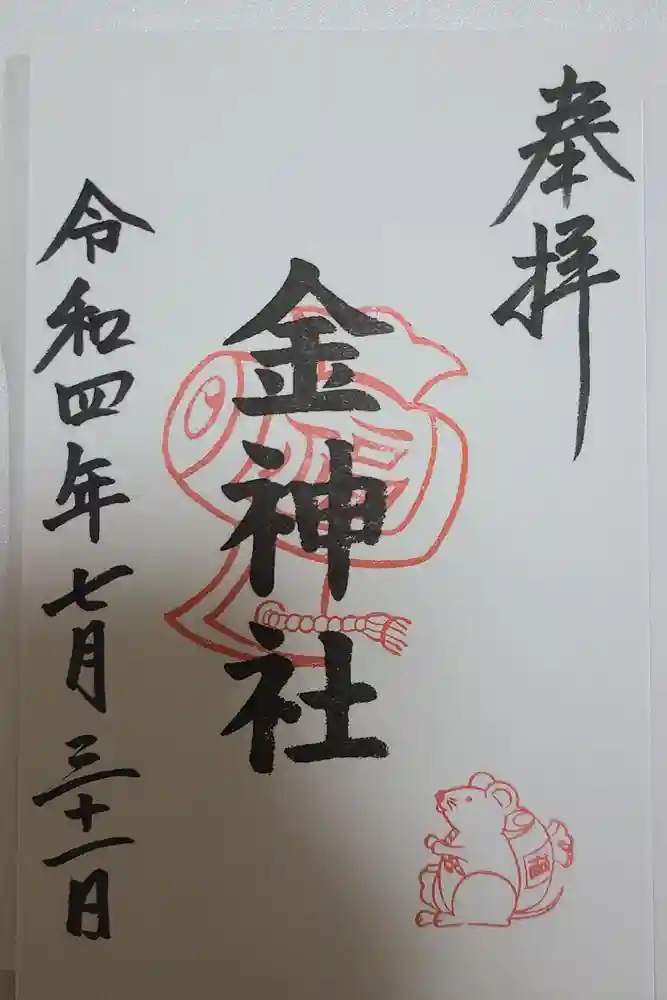 奉拝
金神社
令和四年七月三十一日
福